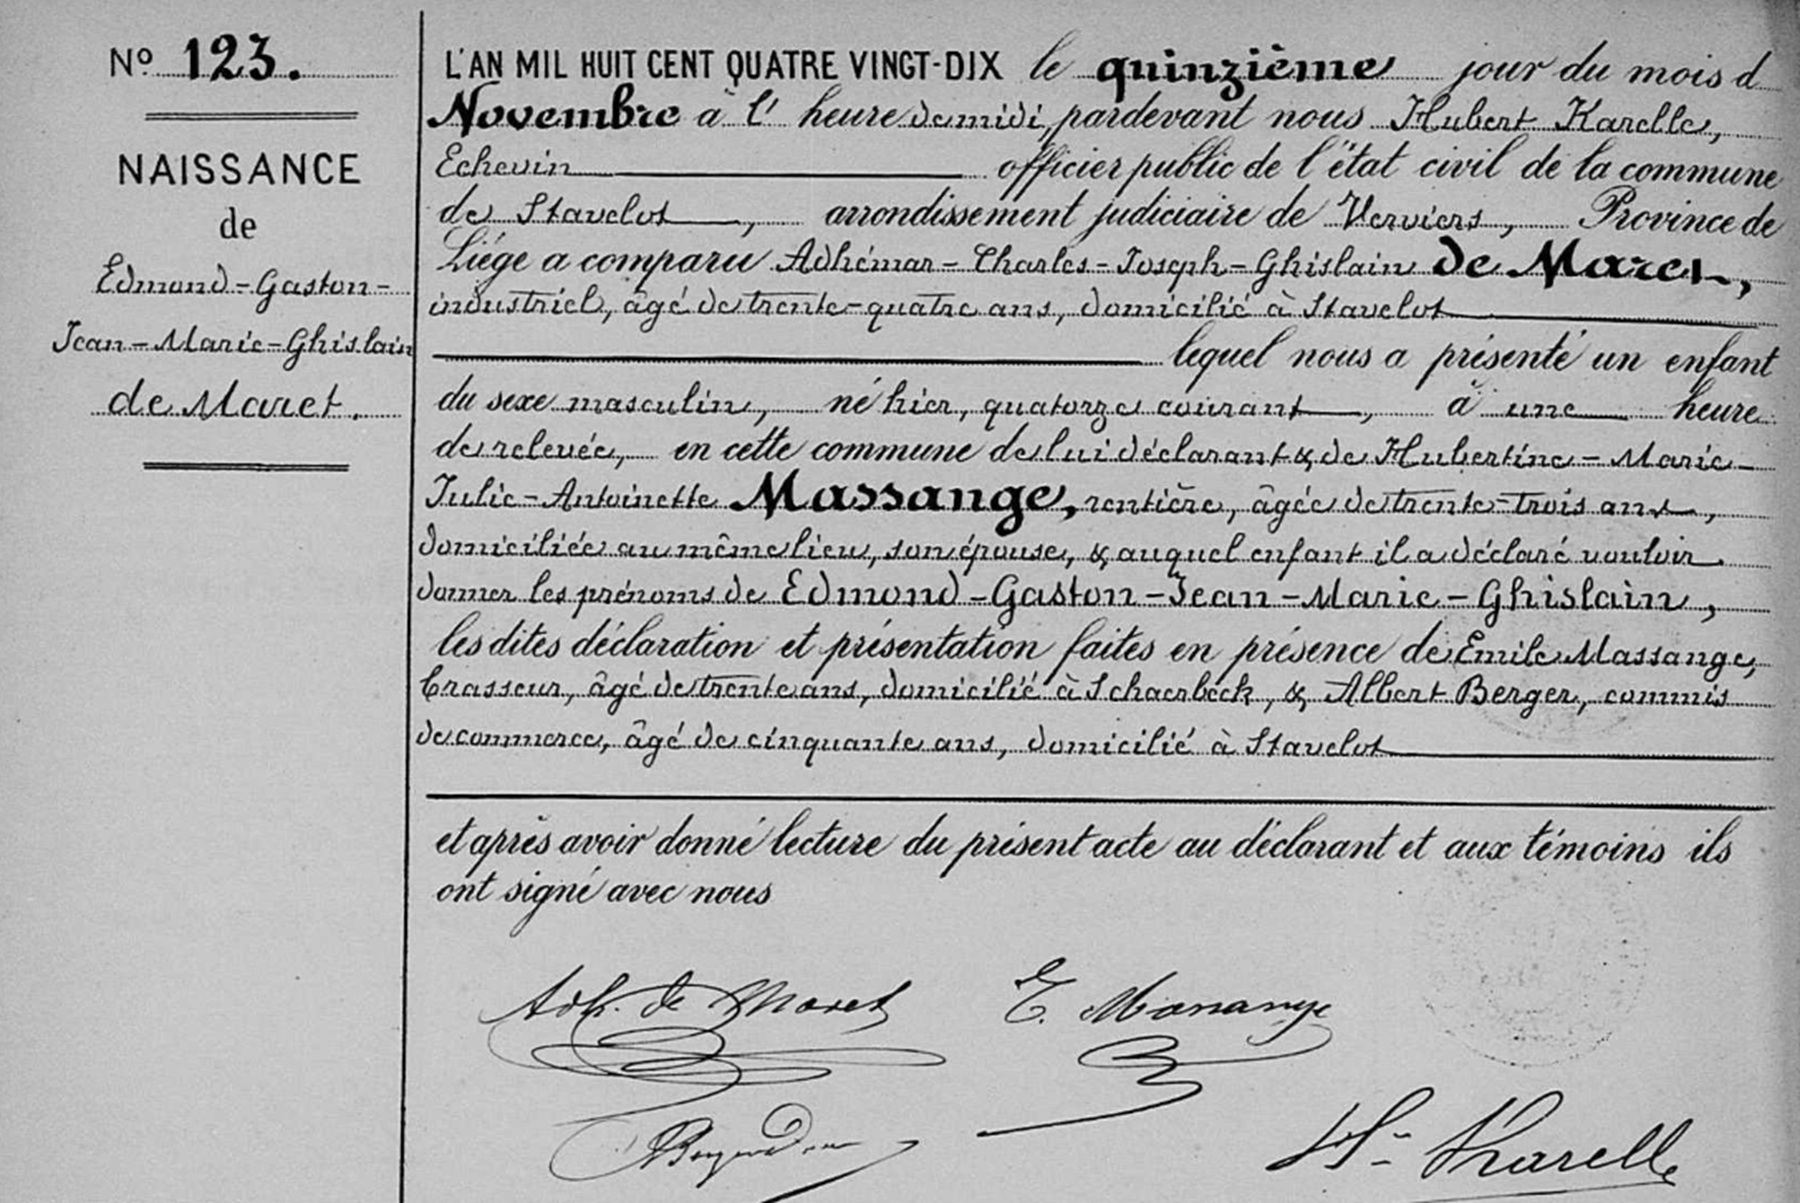 No 123.
NAISSANCE
de
Edmond-Gaston-
Jean-Marie-Ghislain
de Maret.
L'AN MIL HUIT CENT QUATRE VINGT-DIX le quinzième jour du mois d
Novembre à l' heure de midi, pardevant nous Hubert Karelle,
Echevin officier public de l'état civil de la commune
de Stavelot, arrondissement judiciaire de Verviers, Province de
Liége a comparu Adhémar-Charles-Joseph-Ghislain de Maret,
industriel, âgé de trente-quatre ans, domicilié à Stavelot
lequel nous a présenté un enfant
du sexe masculin, né hier, quatorze courant, à une heure
de relevée, en cette commune de lui déclarant & de Hubertine-Marie-
Julie-Antoinette Massange, rentière, âgée de trente-trois ans,
domiciliée au même lieu, son épouse, & auquel enfant il a déclaré vouloir
donner les prénoms de Edmond-Gaston-Jean-Marie-Ghislain,
les dites déclaration et présentation faites en présence de Emile Massange,
brasseur, âgé de trente ans, domicilié à Schaerbeck, & Albert Berger, commis
de commerce, âgé de cinquante ans, domicilié à Stavelot
et après avoir donné lecture du présent acte au déclarant et aux témoins ils
ont signé avec nous
Adh. de Maret E. Massange
H. Karelle